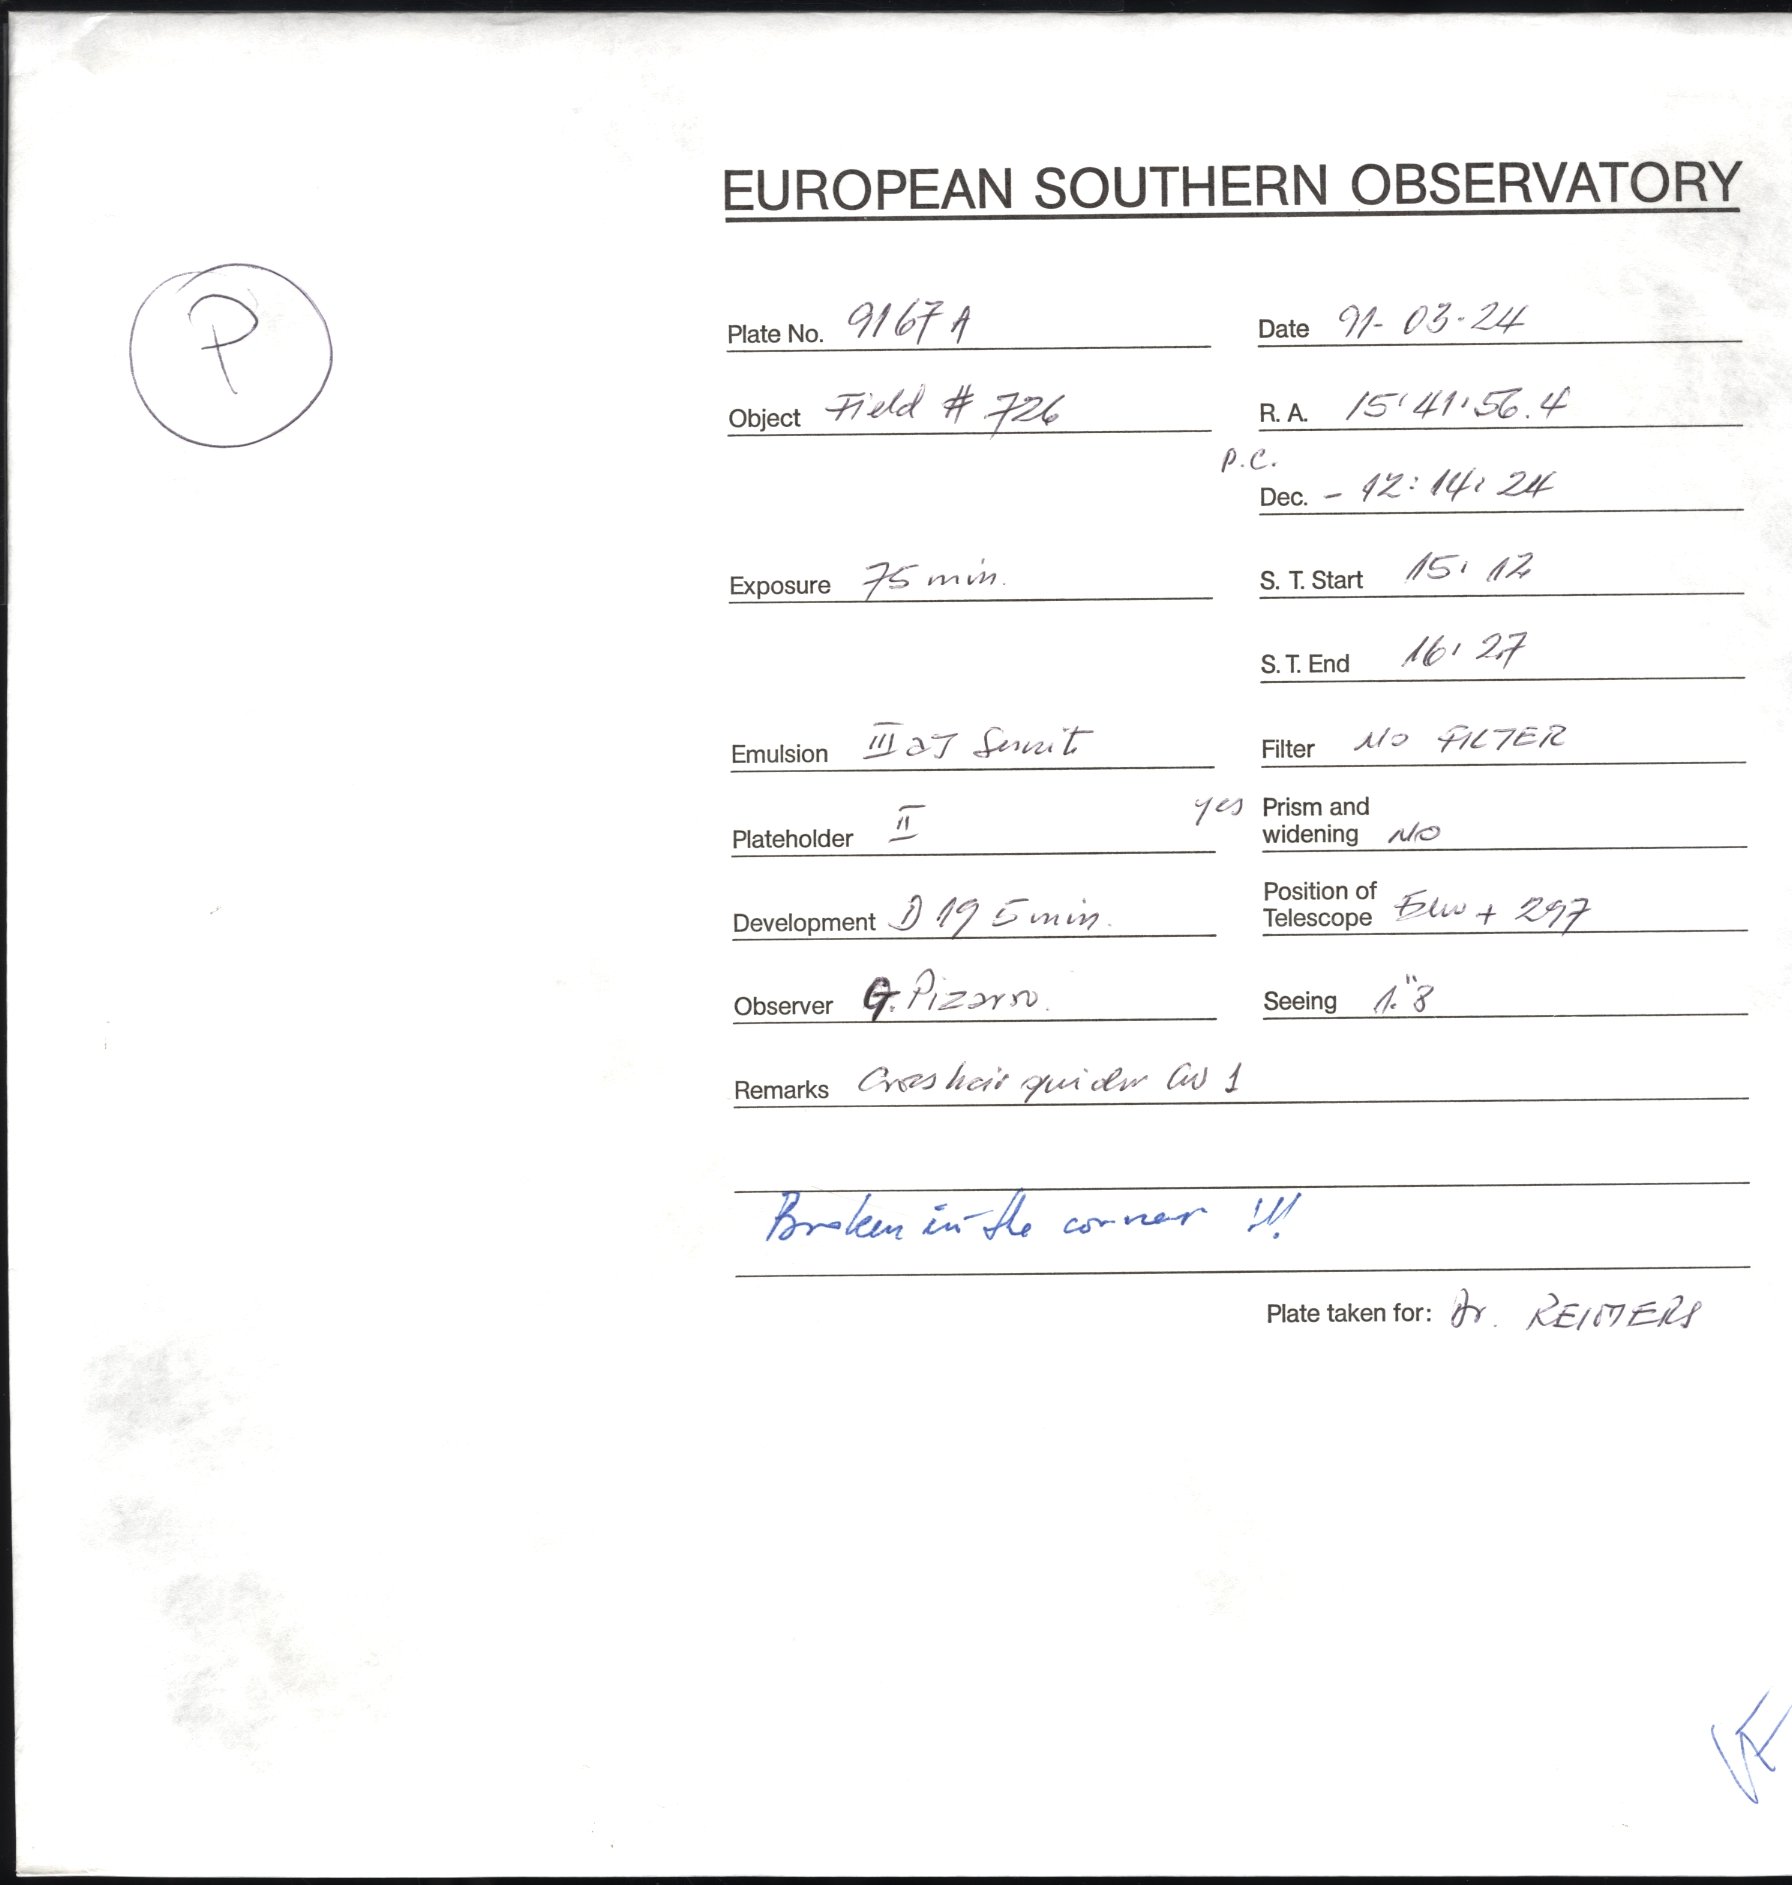 EUROPEAN SOUTHERN OBSERVATORY
P
Plate No. 9167 A
Date 91-03-24
Object Field # 726
R. A. 15:41:56.4
P.C.
Dec. - 12:14:24
Exposure 75 min.
S. T. Start 15:12
S. T. End 16:27
Emulsion III aJ
Filter NO FILTER
Plateholder II
yes Prism and
widening NO
Development D 19 5 min.
Position of
Telescope + 297
Observer G. Pizarro.
Seeing 1."8
Remarks Croshair guider 1
Broken in the corner !!!
Plate taken for: Dr. REIMERS